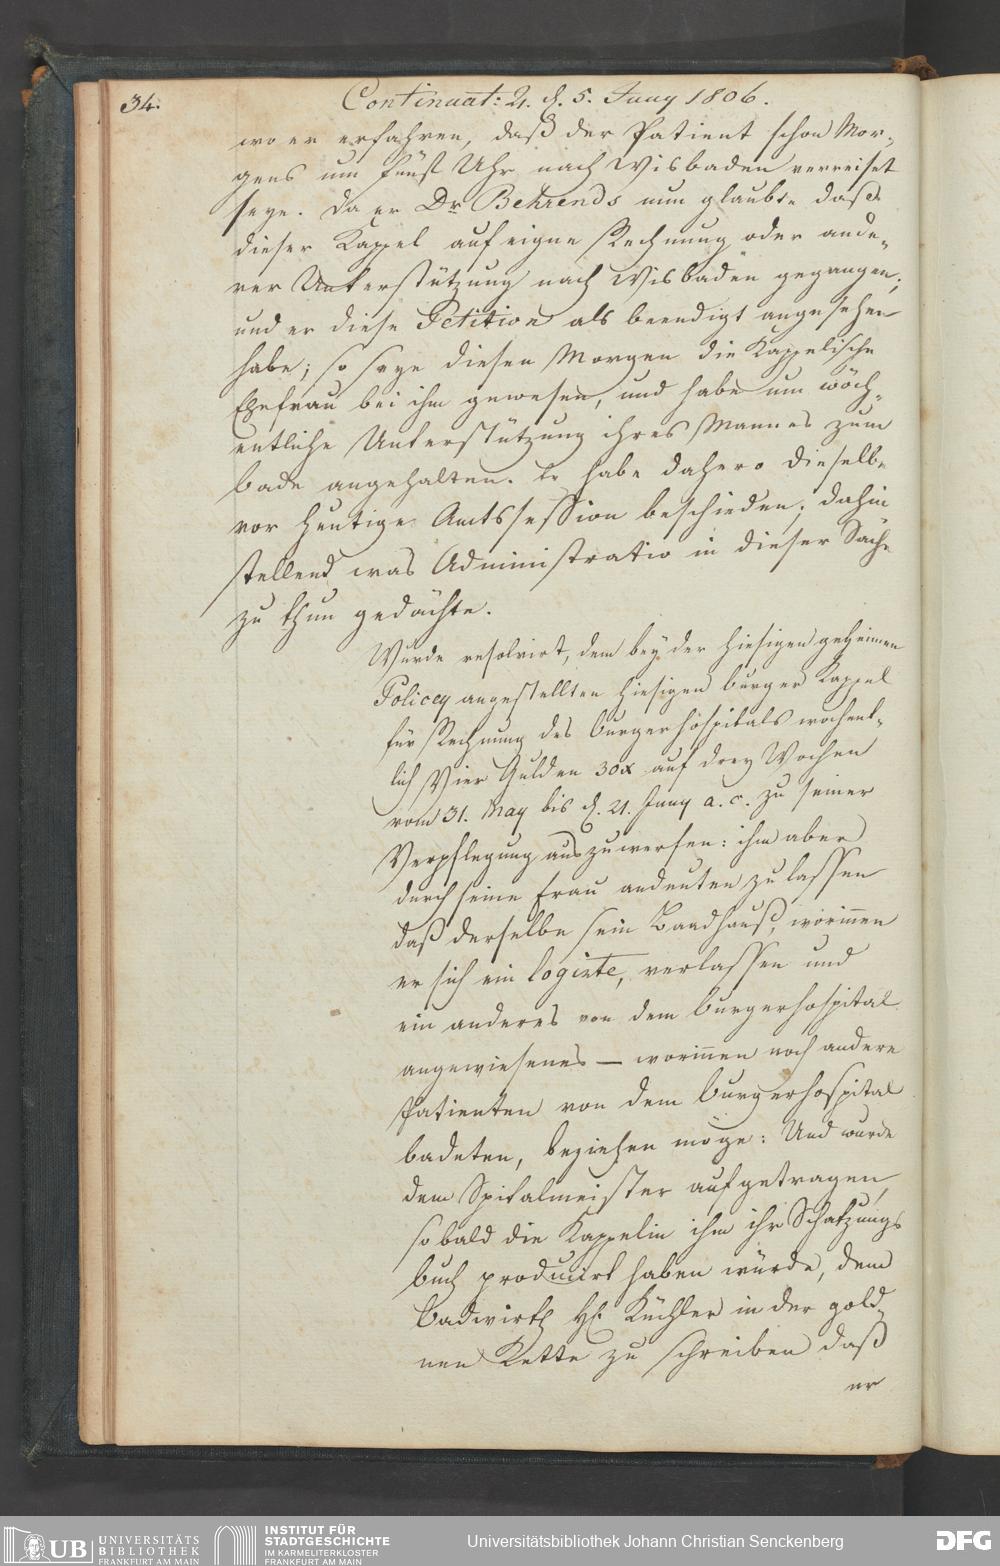 34.
Continuat: 2. d. 5. Juny 1806.
wo er erfahren, daß der Patient schon Mor-
gens um fünf Uhr nach Wisbaden verreiset
seye. Da er Dr Behrends nun glaubte daß
dieser Kappel auf eigne Rechnung oder ande-
rer Unterstützung nach Wisbaden gegangen;
und er diese Petition als beendigt angesehen
habe; so seye diesen Morgen die Kappelische
Ehefrau bei ihm gewesen, und habe um wöch-
entliche Unterstützung ihres Mannes zum
bade angehalten. Er habe dahero dieselbe
vor heutige Amtssession beschieden; dahin
stellend was Administratio in dieser Sache
zu thun gedächte.
Wurde resolvirt, dem bey der hiesigen geheimen
Policey angestellten hiesigen burger Kappel
für Rechnung des burgerhospitals wochent-
lich Vier Gulden 30x auf drey Wochen
vom 31. May bis d. 21. Juny a. c. zu seiner
Verpflegung auszuwerfen: ihm aber
durch seine Frau andeuten zu lassen
daß derselbe sein Baadhauß, worinnen
er sich ein logirte, verlassen und
ein anderes von dem burgerhospital
angewiesenes — worinnen noch andere
Patienten von dem burgerhospital
badeten, beziehen möge: Und wurde
dem Spitalmeister aufgetragen,
so bald die Kappelin ihm ihr Schatzungs
buch producirt haben würde, dem
Badwirth H. Küchler in der gold-
nen Kette zu schreiben daß
er
UB UNIVERSITÄTS
BIBLIOTHEK
FRANKFURT AM MAIN
INSTITUT FÜR
STADTGESCHICHTE
IM KARMELITERKLOSTER
FRANKFURT AM MAIN
Universitätsbibliothek Johann Christian Senckenberg
DFG